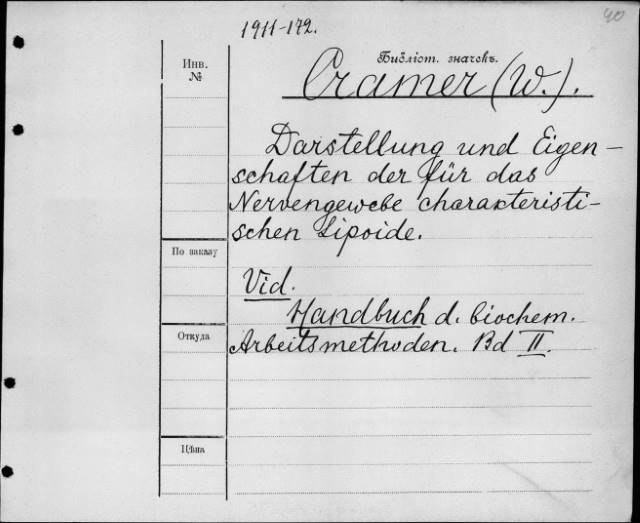 40
1911-172.
Библіот. значекъ.
Инв.
№
Cramer (W.).
Darstellung und Eigen-
schaften der für das
Nervengewebe charakteristi-
schen Lipoide.
По заказу
Vid.
Handbuch d. biochem.
Откуда
Arbeitsmethoden. Bd II.
Цѣна